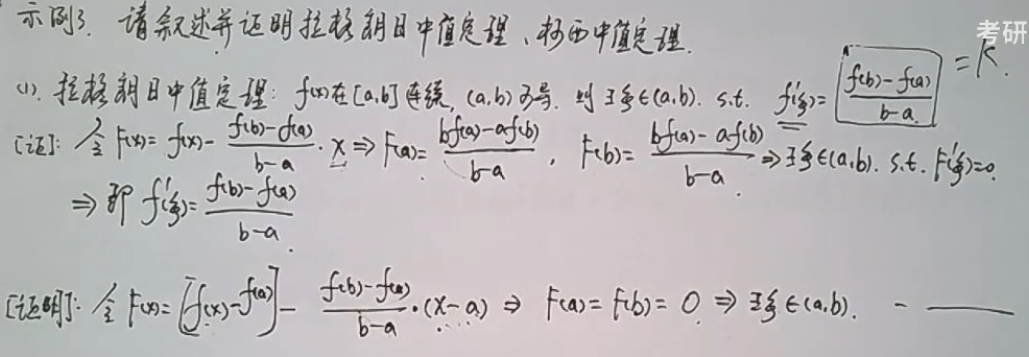 示例3. 请叙述并证明拉格朗日中值定理、柯西中值定理.
考研
(1). 拉格朗日中值定理: f(x)在[a,b]连续, (a,b)可导. 则∃ξ∈(a,b). s.t. f'(ξ)= (f(b)-f(a))/(b-a) = K.
[证]: 令 F(x)= f(x)- (f(b)-f(a))/(b-a) · x ⇒ F(a)= (bf(a)-af(b))/(b-a), F(b)= (bf(a)-af(b))/(b-a) ⇒ ∃ξ∈(a,b). s.t. F'(ξ)=0.
⇒ 即 f'(ξ)= (f(b)-f(a))/(b-a).
[证明]: 令 F(x)= [f(x)-f(a)] - (f(b)-f(a))/(b-a) ·(x-a) ⇒ F(a)=F(b)=0 ⇒ ∃ξ∈(a,b). - ——